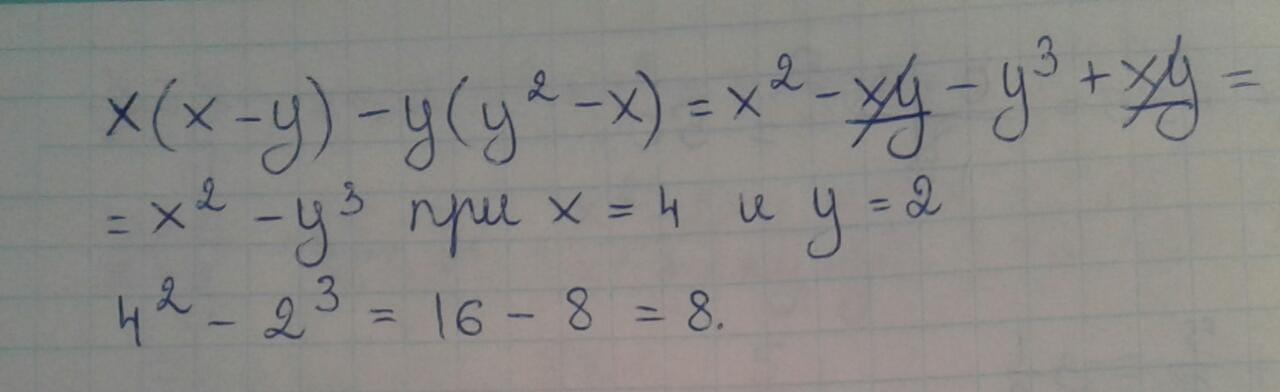 x(x-y)-y(y²-x)=x²-xy-y³+xy=
=x²-y³ при x=4 и y=2
4²-2³=16-8=8.